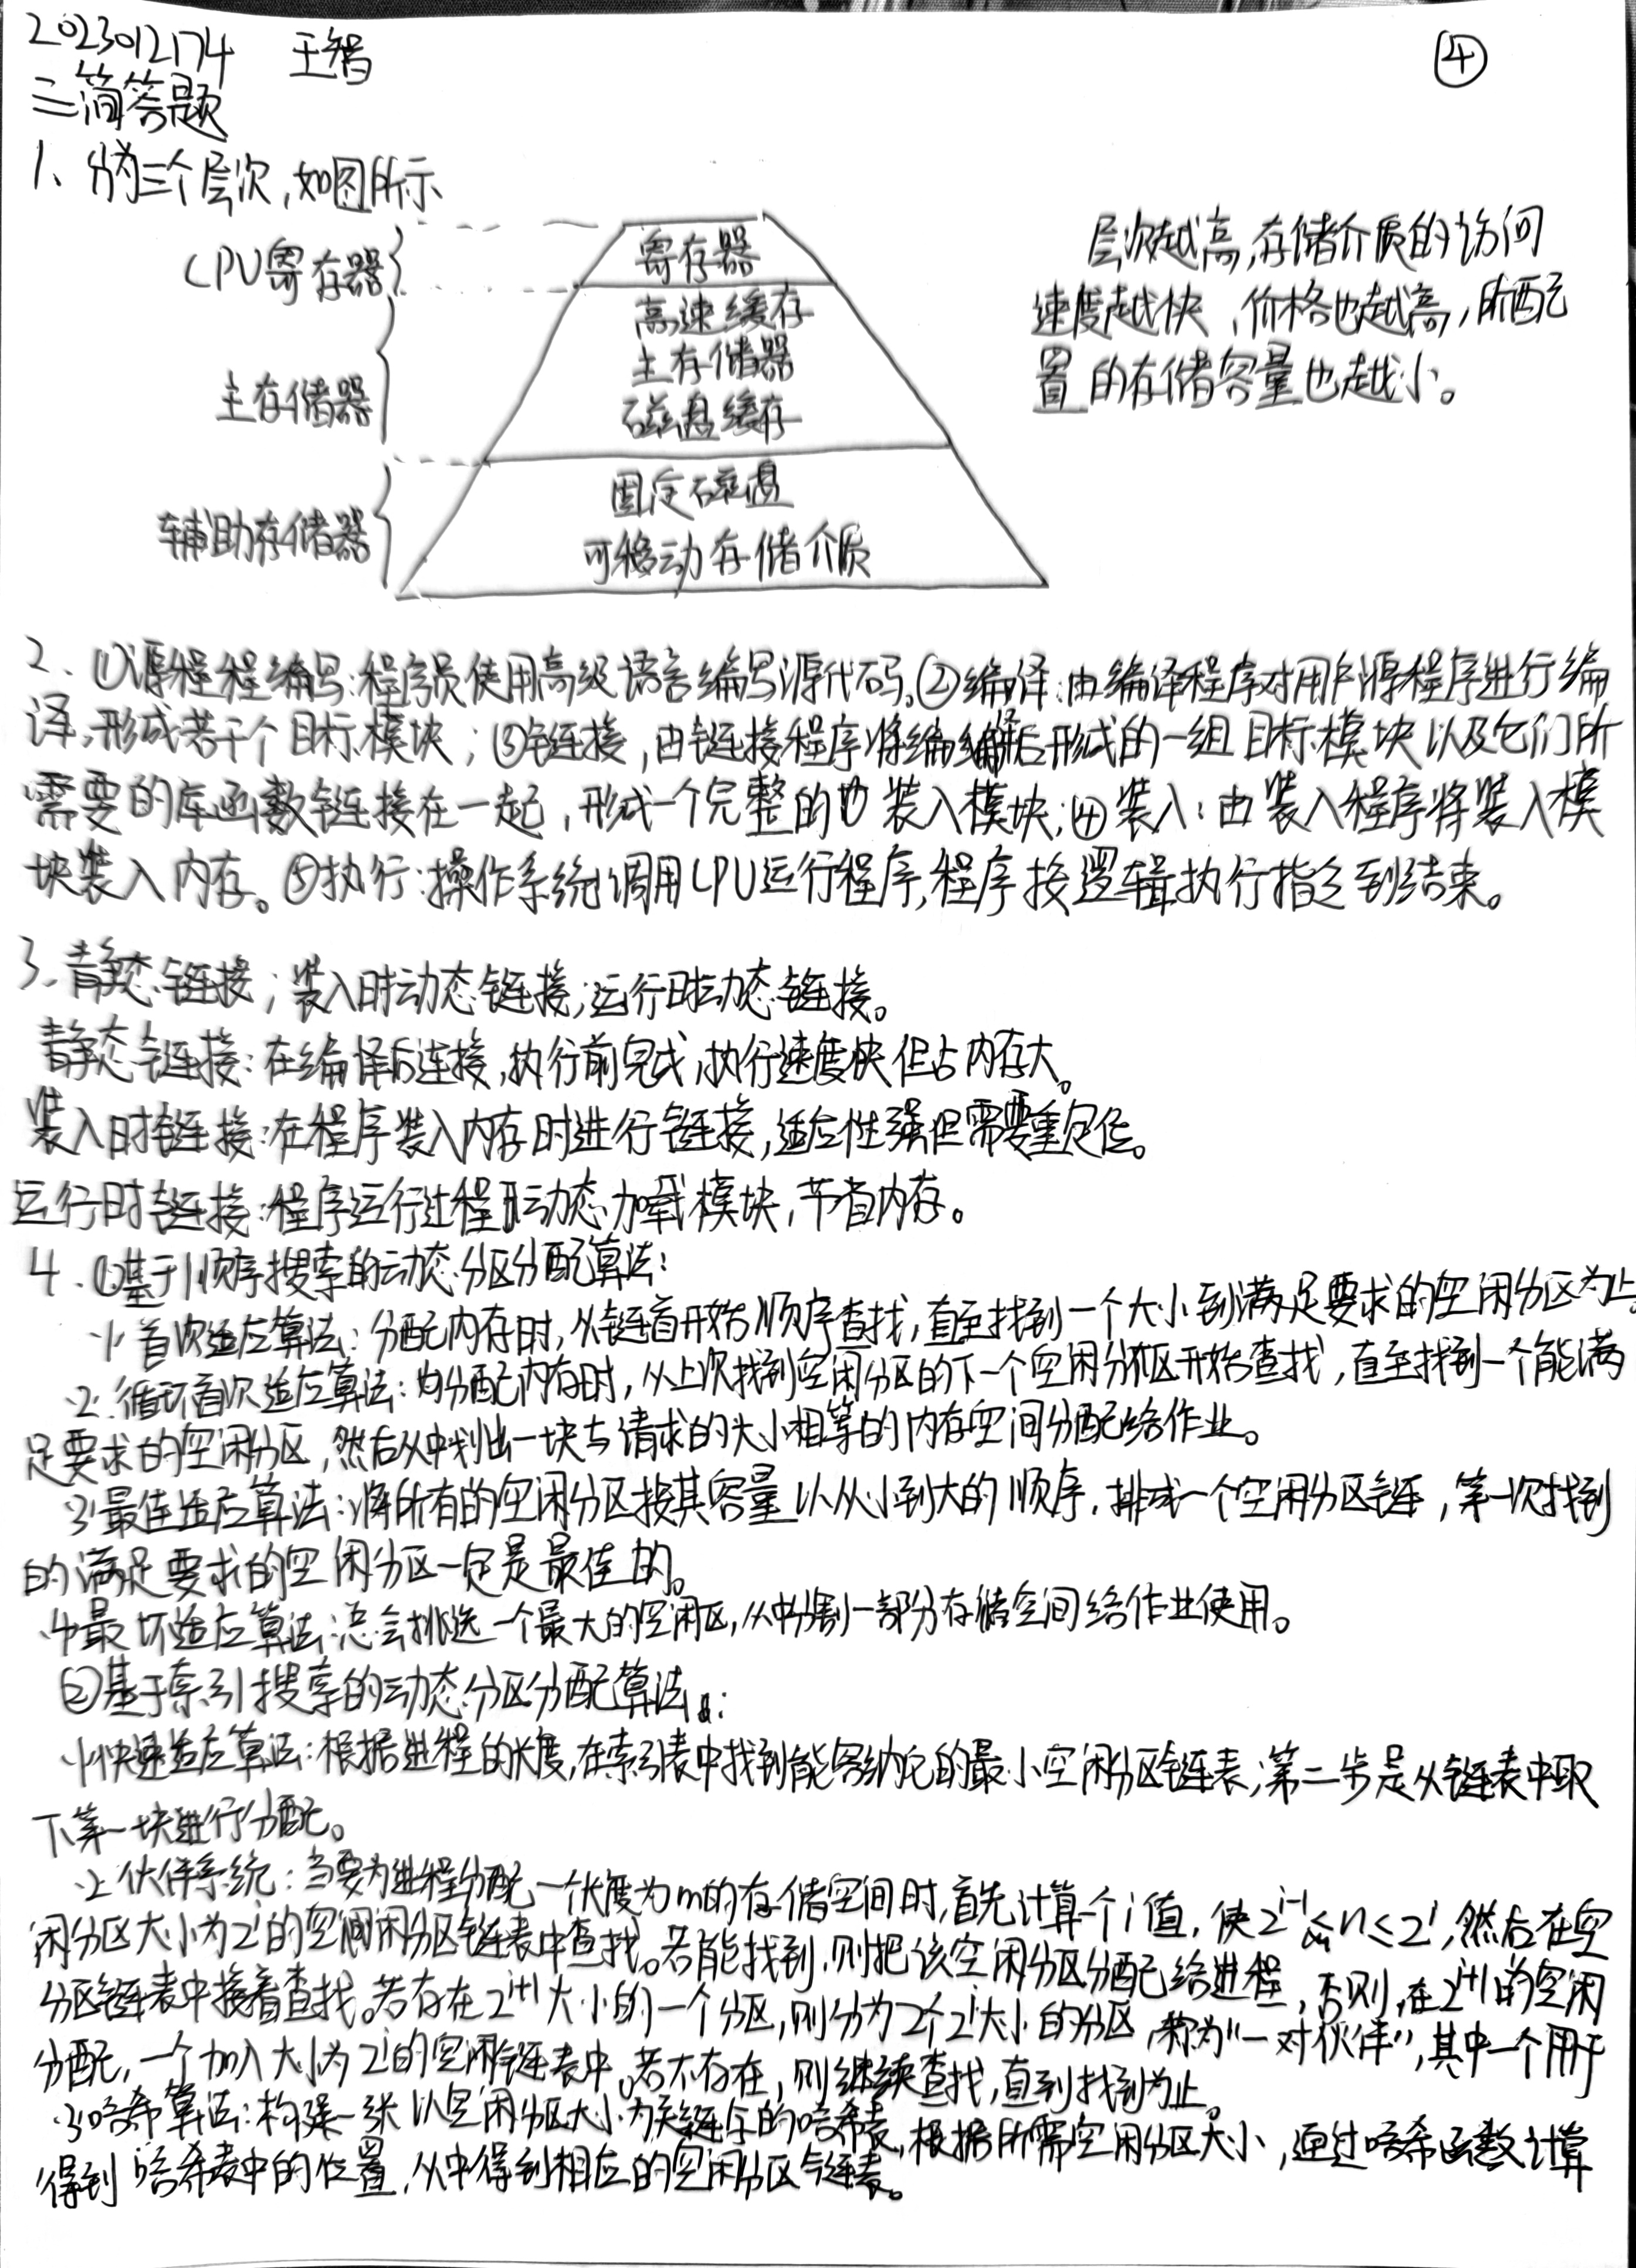 2023012174 王智
④
二简答题
1、分为三个层次,如图所示
CPU寄存器
寄存器
高速缓存
主存储器
磁盘缓存
主存储器
固定磁盘
可移动存储介质
辅助存储器
层次越高,存储介质的访问
速度越快,价格也越高,所配
置的存储容量也越小。
2、①源程程编写:程序员使用高级语言编写源代码。②编译:由编译程序对用户源程序进行编
译,形成若干个目标模块;③链接,由链接程序将编译后形成的一组目标模块以及它们所
需要的库函数链接在一起,形成一个完整的装入模块;④装入:由装入程序将装入模
块装入内存。⑤执行:操作系统调用CPU运行程序,程序按逻辑执行指令到结束。
3、静态链接;装入时动态链接;运行时动态链接。
静态链接:在编译后连接,执行前完成,执行速度快但占内存大。
装入时链接:在程序装入内存时进行链接,适应性强但需要重定位。
运行时链接:程序运行过程动态加载模块,节省内存。
4、①基于顺序搜索的动态分区分配算法:
1)首次适应算法:分配内存时,从链首开始顺序查找,直至找到一个大小到满足要求的空闲分区为止。
2)循环首次适应算法:为分配内存时,从上次找到空闲分区的下一个空闲分区开始查找,直至找到一个能满
足要求的空闲分区,然后从中划出一块与请求的大小相等的内存空间分配给作业。
3)最佳适应算法:将所有的空闲分区按其容量以从小到大的顺序,排成一个空闲分区链,第一次找到
的满足要求的空闲分区一定是最佳的。
4)最坏适应算法:总会挑选一个最大的空闲区,从中分割一部分存储空间给作业使用。
②基于索引搜索的动态分区分配算法:
1)快速适应算法:根据进程的长度,在索引表中找到能容纳它的最小空闲分区链表;第二步是从链表中取
下第一块进行分配。
2)伙伴系统:当要为进程分配一个长度为m的存储空间时,首先计算一个i值,使2^{i-1}≤n≤2^i,然后在空
闲分区大小为2^i的空闲分区链表中查找。若能找到,则把该空闲分区分配给进程,否则,在2^{i+1}的空闲
分区链表中接着查找。若存在2^{i+1}大小的一个分区,则分为2个2^i大小的分区,称为"一对伙伴",其中一个用于
分配,一个加入大小为2^i的空闲链表中。若不存在,则继续查找,直到找到为止。
3)哈希算法:构建一张以空闲分区大小为关键字的哈希表,根据所需空闲分区大小,通过哈希函数计算
得到哈希表中的位置,从中得到相应的空闲分区链表。